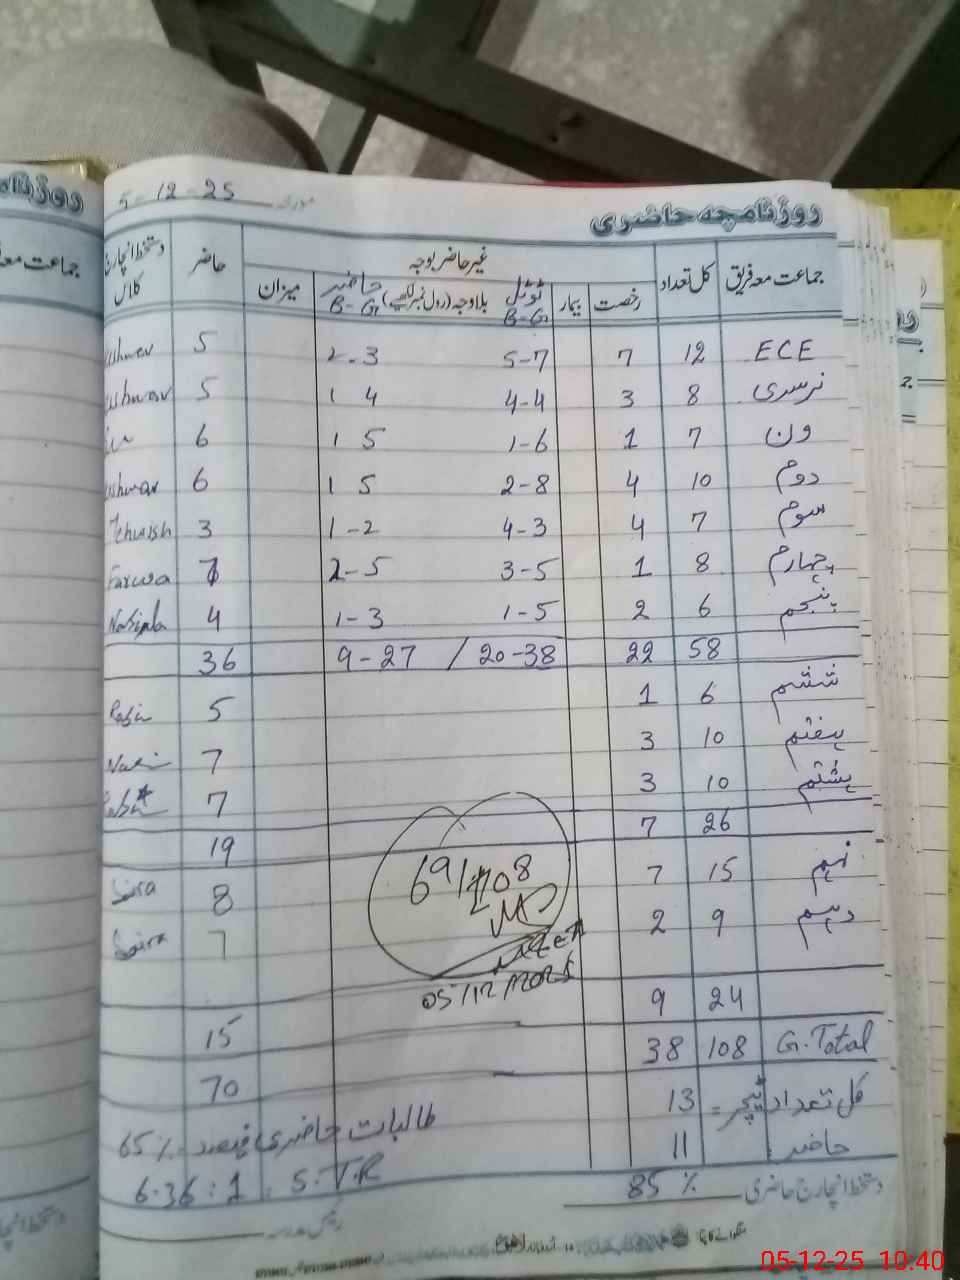 5-12-25 مورخہ
روزنامچہ حاضری
جماعت معہ فریق کل تعداد غیر حاضر بوجہ حاضر دستخط انچارج کلاس
رخصت بیمار ٹوٹل B-G بلاوجہ (رول نمبر لکھیے) حاضر B-G میزان
ECE 12 7 5-7 2-3 5
نرسری 8 3 4-4 1 4 5
ون 7 1 1-6 1 5 6
دوم 10 4 2-8 1 5 6
سوم 7 4 4-3 1-2 3 Mehwish
چہارم 8 1 3-5 2-5 7 Farwa
پنجم 6 2 1-5 1-3 4
58 22 20-38 / 9-27 36
ششم 6 1 5
ہفتم 10 3 7
ہشتم 10 3 7
26 7 19
نہم 15 7 8 Saira
دہم 9 2 7 Saira
69/108
05/12/2025
24 9 15
G.Total 108 38 70
کل تعداد ٹیچر = 13
حاضر 11
طالبات حاضری فیصد 65%
دستخط انچارج حاضری 85%
6.36:1 S.T.R
رئیس مدرسہ
روزنا
جماعت معہ
دستخط انچا
05-12-25 10:40